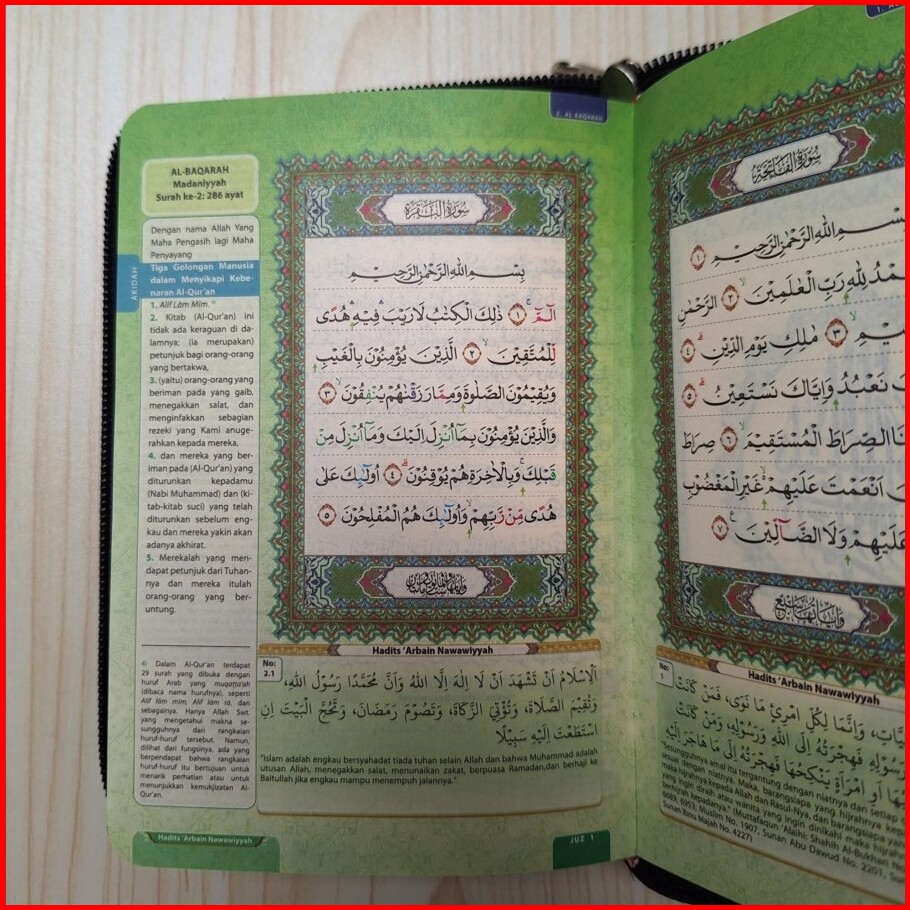 2. AL-BAQARAH
AL-BAQARAH
Madaniyyah
Surah ke-2: 286 ayat
Dengan nama Allah Yang
Maha Pengasih lagi Maha
Penyayang
AKIDAH
Tiga Golongan Manusia
dalam Menyikapi Kebe-
naran Al-Qur'an
1. Alif Lām Mīm. 4)
2. Kitab (Al-Qur'an) ini
tidak ada keraguan di da-
lamnya; (ia merupakan)
petunjuk bagi orang-orang
yang bertakwa,
3. (yaitu) orang-orang yang
beriman pada yang gaib,
menegakkan salat, dan
menginfakkan sebagian
rezeki yang Kami anuge-
rahkan kepada mereka,
4. dan mereka yang ber-
iman pada (Al-Qur'an) yang
diturunkan kepadamu
(Nabi Muhammad) dan (ki-
tab-kitab suci) yang telah
diturunkan sebelum eng-
kau dan mereka yakin akan
adanya akhirat.
5. Merekalah yang men-
dapat petunjuk dari Tuhan-
nya dan mereka itulah
orang-orang yang ber-
untung.
4) Dalam Al-Qur'an terdapat
29 surah yang dibuka dengan
huruf Arab yang muqaṭṭa‘ah
(dibaca nama hurufnya), seperti
Alif lām mīm, Alif lām rā, dan
sebagainya. Hanya Allah Swt.
yang mengetahui makna se-
sungguhnya dari rangkaian
huruf-huruf tersebut. Namun,
dilihat dari fungsinya, ada yang
berpendapat bahwa rangkaian
huruf-huruf itu bertujuan untuk
menarik perhatian atau untuk
menunjukkan kemukjizatan Al-
Qur'an.
سُوْرَةُ الْبَقَرَةِ
بِسْمِ اللّٰهِ الرَّحْمٰنِ الرَّحِيْمِ
الۤمّۤ ۚ ١ ذٰلِكَ الْكِتٰبُ لَا رَيْبَ ۛ فِيْهِ ۛ هُدًى
لِّلْمُتَّقِيْنَ ۙ ٢ الَّذِيْنَ يُؤْمِنُوْنَ بِالْغَيْبِ
وَيُقِيْمُوْنَ الصَّلٰوةَ وَمِمَّا رَزَقْنٰهُمْ يُنْفِقُوْنَ ۙ ٣
وَالَّذِيْنَ يُؤْمِنُوْنَ بِمَآ اُنْزِلَ اِلَيْكَ وَمَآ اُنْزِلَ مِنْ
قَبْلِكَ ۚ وَبِالْاٰخِرَةِ هُمْ يُوْقِنُوْنَ ۗ ٤ اُولٰۤىِٕكَ عَلٰى
هُدًى مِّنْ رَّبِّهِمْ ۙ وَاُولٰۤىِٕكَ هُمُ الْمُفْلِحُوْنَ ٥
Hadits 'Arbain Nawawiyyah
No:
2.1
اَلْإِسْلَامُ اَنْ تَشْهَدَ اَنْ لَا اِلٰهَ اِلَّا اللهُ وَاَنَّ مُحَمَّدًا رَسُوْلُ اللهِ،
وَتُقِيْمَ الصَّلَاةَ، وَتُؤْتِيَ الزَّكَاةَ، وَتَصُوْمَ رَمَضَانَ، وَتَحُجَّ الْبَيْتَ اِنِ
اسْتَطَعْتَ اِلَيْهِ سَبِيْلًا
"Islam adalah engkau bersyahadat tiada tuhan selain Allah dan bahwa Muhammad adalah
utusan Allah, menegakkan salat, menunaikan zakat, berpuasa Ramadan,dan berhaji ke
Baitullah jika engkau mampu menempuh jalannya."
Hadits 'Arbain Nawawiyyah
JUZ 1
سُوْرَةُ الْفَاتِحَةِ
بِسْمِ اللّٰهِ الرَّحْمٰنِ الرَّحِيْمِ ١
لِلّٰهِ رَبِّ الْعٰلَمِيْنَ ۙ ٢ الرَّحْمٰنِ
ۙ ٣ مٰلِكِ يَوْمِ الدِّيْنِ ۗ ٤
نَعْبُدُ وَاِيَّاكَ نَسْتَعِيْنُ ۗ ٥
الصِّرَاطَ الْمُسْتَقِيْمَ ۙ ٦ صِرَاطَ
اَنْعَمْتَ عَلَيْهِمْ ۙ غَيْرِ الْمَغْضُوْبِ
عَلَيْهِمْ وَلَا الضَّاۤلِّيْنَ ࣖ ٧
وَاٰيَاتُهَا سَبْعٌ
Hadits 'Arbain Nawawiyyah
No:
1
وَاِنَّمَا لِكُلِّ امْرِئٍ مَا نَوَى، فَمَنْ كَانَتْ
فَهِجْرَتُهُ اِلَى اللهِ وَرَسُوْلِهِ، وَمَنْ كَانَتْ
اَوِ امْرَأَةٍ يَنْكِحُهَا فَهِجْرَتُهُ اِلَى مَا هَاجَرَ اِلَيْهِ
"Sesungguhnya amal itu tergantung dengan niatnya dan setiap
sesuai dengan niatnya. Maka, barangsiapa yang hijrahnya
maka hijrahnya kepada Allah dan Rasul-Nya, dan barangsiapa
yang ingin diraih atau wanita yang ingin dinikahi maka
berhijrah kepadanya." (Muttafaqun 'Alaihi: Shahih Al-Bukhari
6689, 6953, Muslim No. 1907, Sunan Abu Dawud No. 2201,
Sunan Ibnu Majah No. 4227)